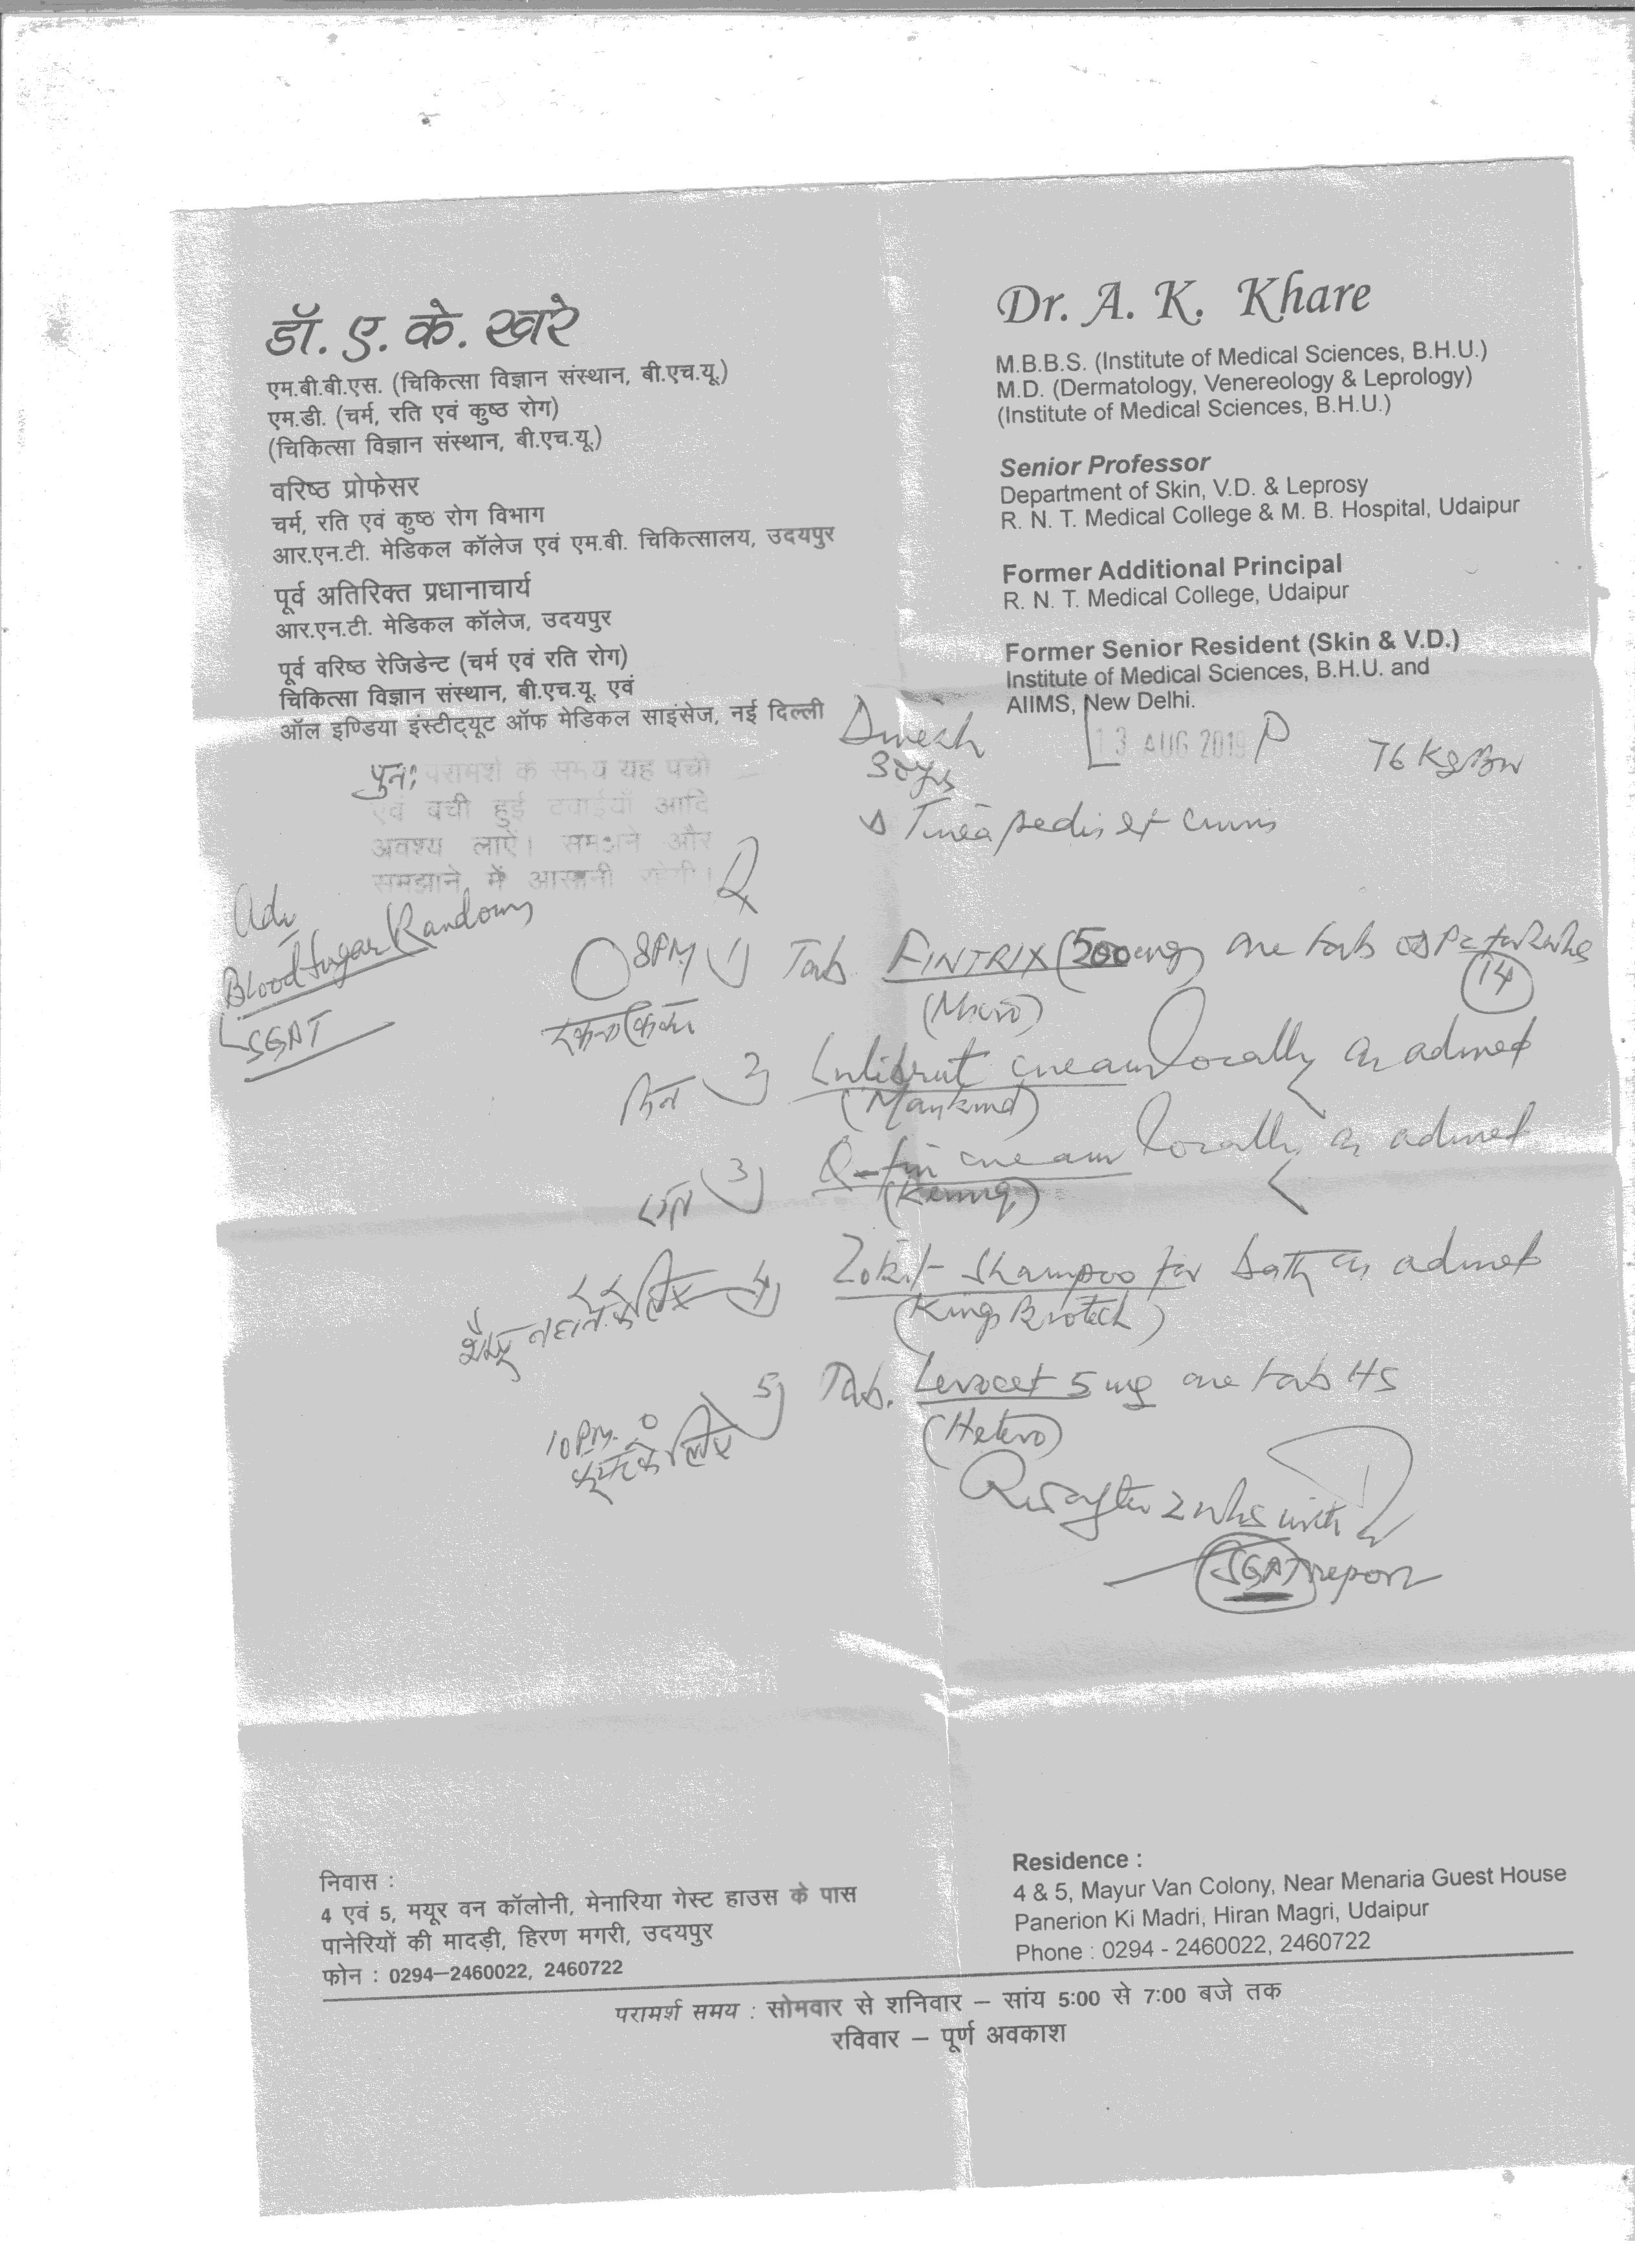 डॉ. ए. के. खरे
एम.बी.बी.एस. (चिकित्सा विज्ञान संस्थान, बी.एच.यू.)
एम.डी. (चर्म, रति एवं कुष्ठ रोग)
(चिकित्सा विज्ञान संस्थान, बी.एच.यू.)
वरिष्ठ प्रोफेसर
चर्म, रति एवं कुष्ठ रोग विभाग
आर.एन.टी. मेडिकल कॉलेज एवं एम.बी. चिकित्सालय, उदयपुर
पूर्व अतिरिक्त प्रधानाचार्य
आर.एन.टी. मेडिकल कॉलेज, उदयपुर
पूर्व वरिष्ठ रेजिडेन्ट (चर्म एवं रति रोग)
चिकित्सा विज्ञान संस्थान, बी.एच.यू. एवं
ऑल इण्डिया इंस्टीट्यूट ऑफ मेडिकल साइंसेज, नई दिल्ली
Dr. A. K. Khare
M.B.B.S. (Institute of Medical Sciences, B.H.U.)
M.D. (Dermatology, Venereology & Leprology)
(Institute of Medical Sciences, B.H.U.)
Senior Professor
Department of Skin, V.D. & Leprosy
R. N. T. Medical College & M. B. Hospital, Udaipur
Former Additional Principal
R. N. T. Medical College, Udaipur
Former Senior Resident (Skin & V.D.)
Institute of Medical Sciences, B.H.U. and
AIIMS, New Delhi.
पुनः परामर्श के समय यह पर्ची
एवं बची हुई दवाईयाँ आदि
अवश्य लाऐं। समझने और
समझाने में आसानी रहेगी।
Dinesh 13 AUG 2019 76 Kg BW
Tinea pedis et cruris
Adv
Blood Sugar Random
SGPT
8PM 1) Tab FINTRIX (500mg) one tab OD PC for 2 wks
(14)
(Micro)
दिन 2) cream locally as advised
(Mankind)
रात 3) Q-fin cream locally as advised
4) Shampoo for bath as advised
नहाने के लिए
(Kings Biotech)
5) Tab. Levocet 5 mg one tab HS
10 P.M.
के लिए
(Hetero)
R/S after 2 wks with
SGPT report
निवास :
4 एवं 5, मयूर वन कॉलोनी, मेनारिया गेस्ट हाउस के पास
पानेरियों की मादड़ी, हिरण मगरी, उदयपुर
फोन : 0294–2460022, 2460722
Residence :
4 & 5, Mayur Van Colony, Near Menaria Guest House
Panerion Ki Madri, Hiran Magri, Udaipur
Phone : 0294 - 2460022, 2460722
परामर्श समय : सोमवार से शनिवार – सांय 5:00 से 7:00 बजे तक
रविवार – पूर्ण अवकाश